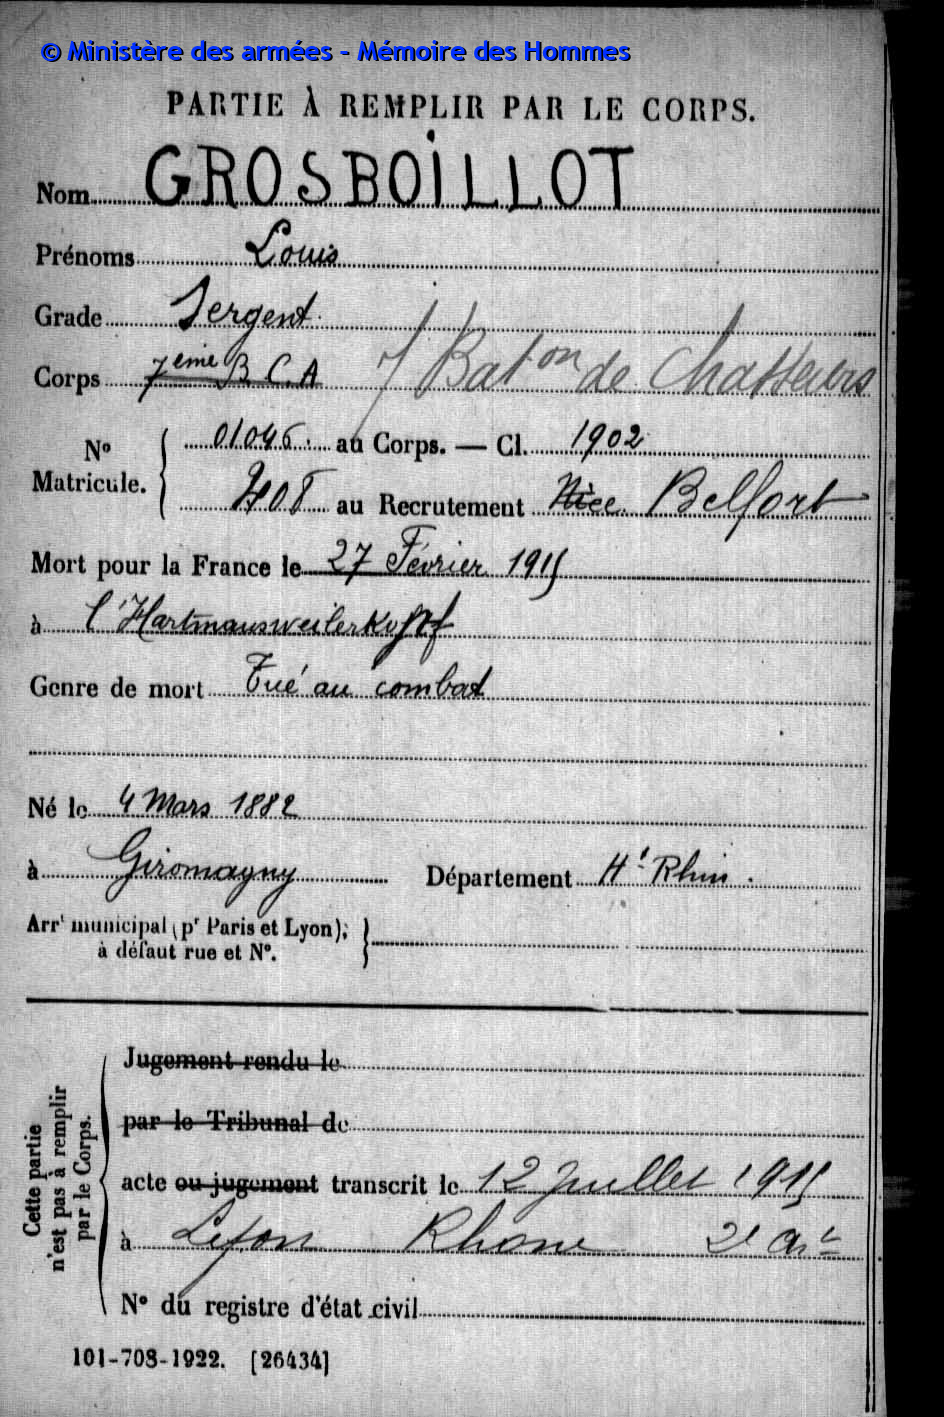 © Ministère des armées - Mémoire des Hommes
PARTIE À REMPLIR PAR LE CORPS.
Nom GROSBOILLOT
Prénoms Louis
Grade Sergent
Corps 7ème B C A 7 Bat on de Chasseurs
No Matricule. 01046. au Corps. — Cl. 1902
408 au Recrutement Nice Belfort
Mort pour la France le 27 Février 1915
à l'Hartmansweilerkopf
Genre de mort Tué au combat
Né le 4 Mars 1882
à Giromagny Département Ht Rhin.
Arrt municipal (pr Paris et Lyon),
à défaut rue et No.
Cette partie n'est pas à remplir par le Corps.
Jugement rendu le
par le Tribunal de
acte ou jugement transcrit le 12 Juillet 1915
à Lyon Rhone 2e Art
No du registre d'état civil
101-708-1922. [26434]